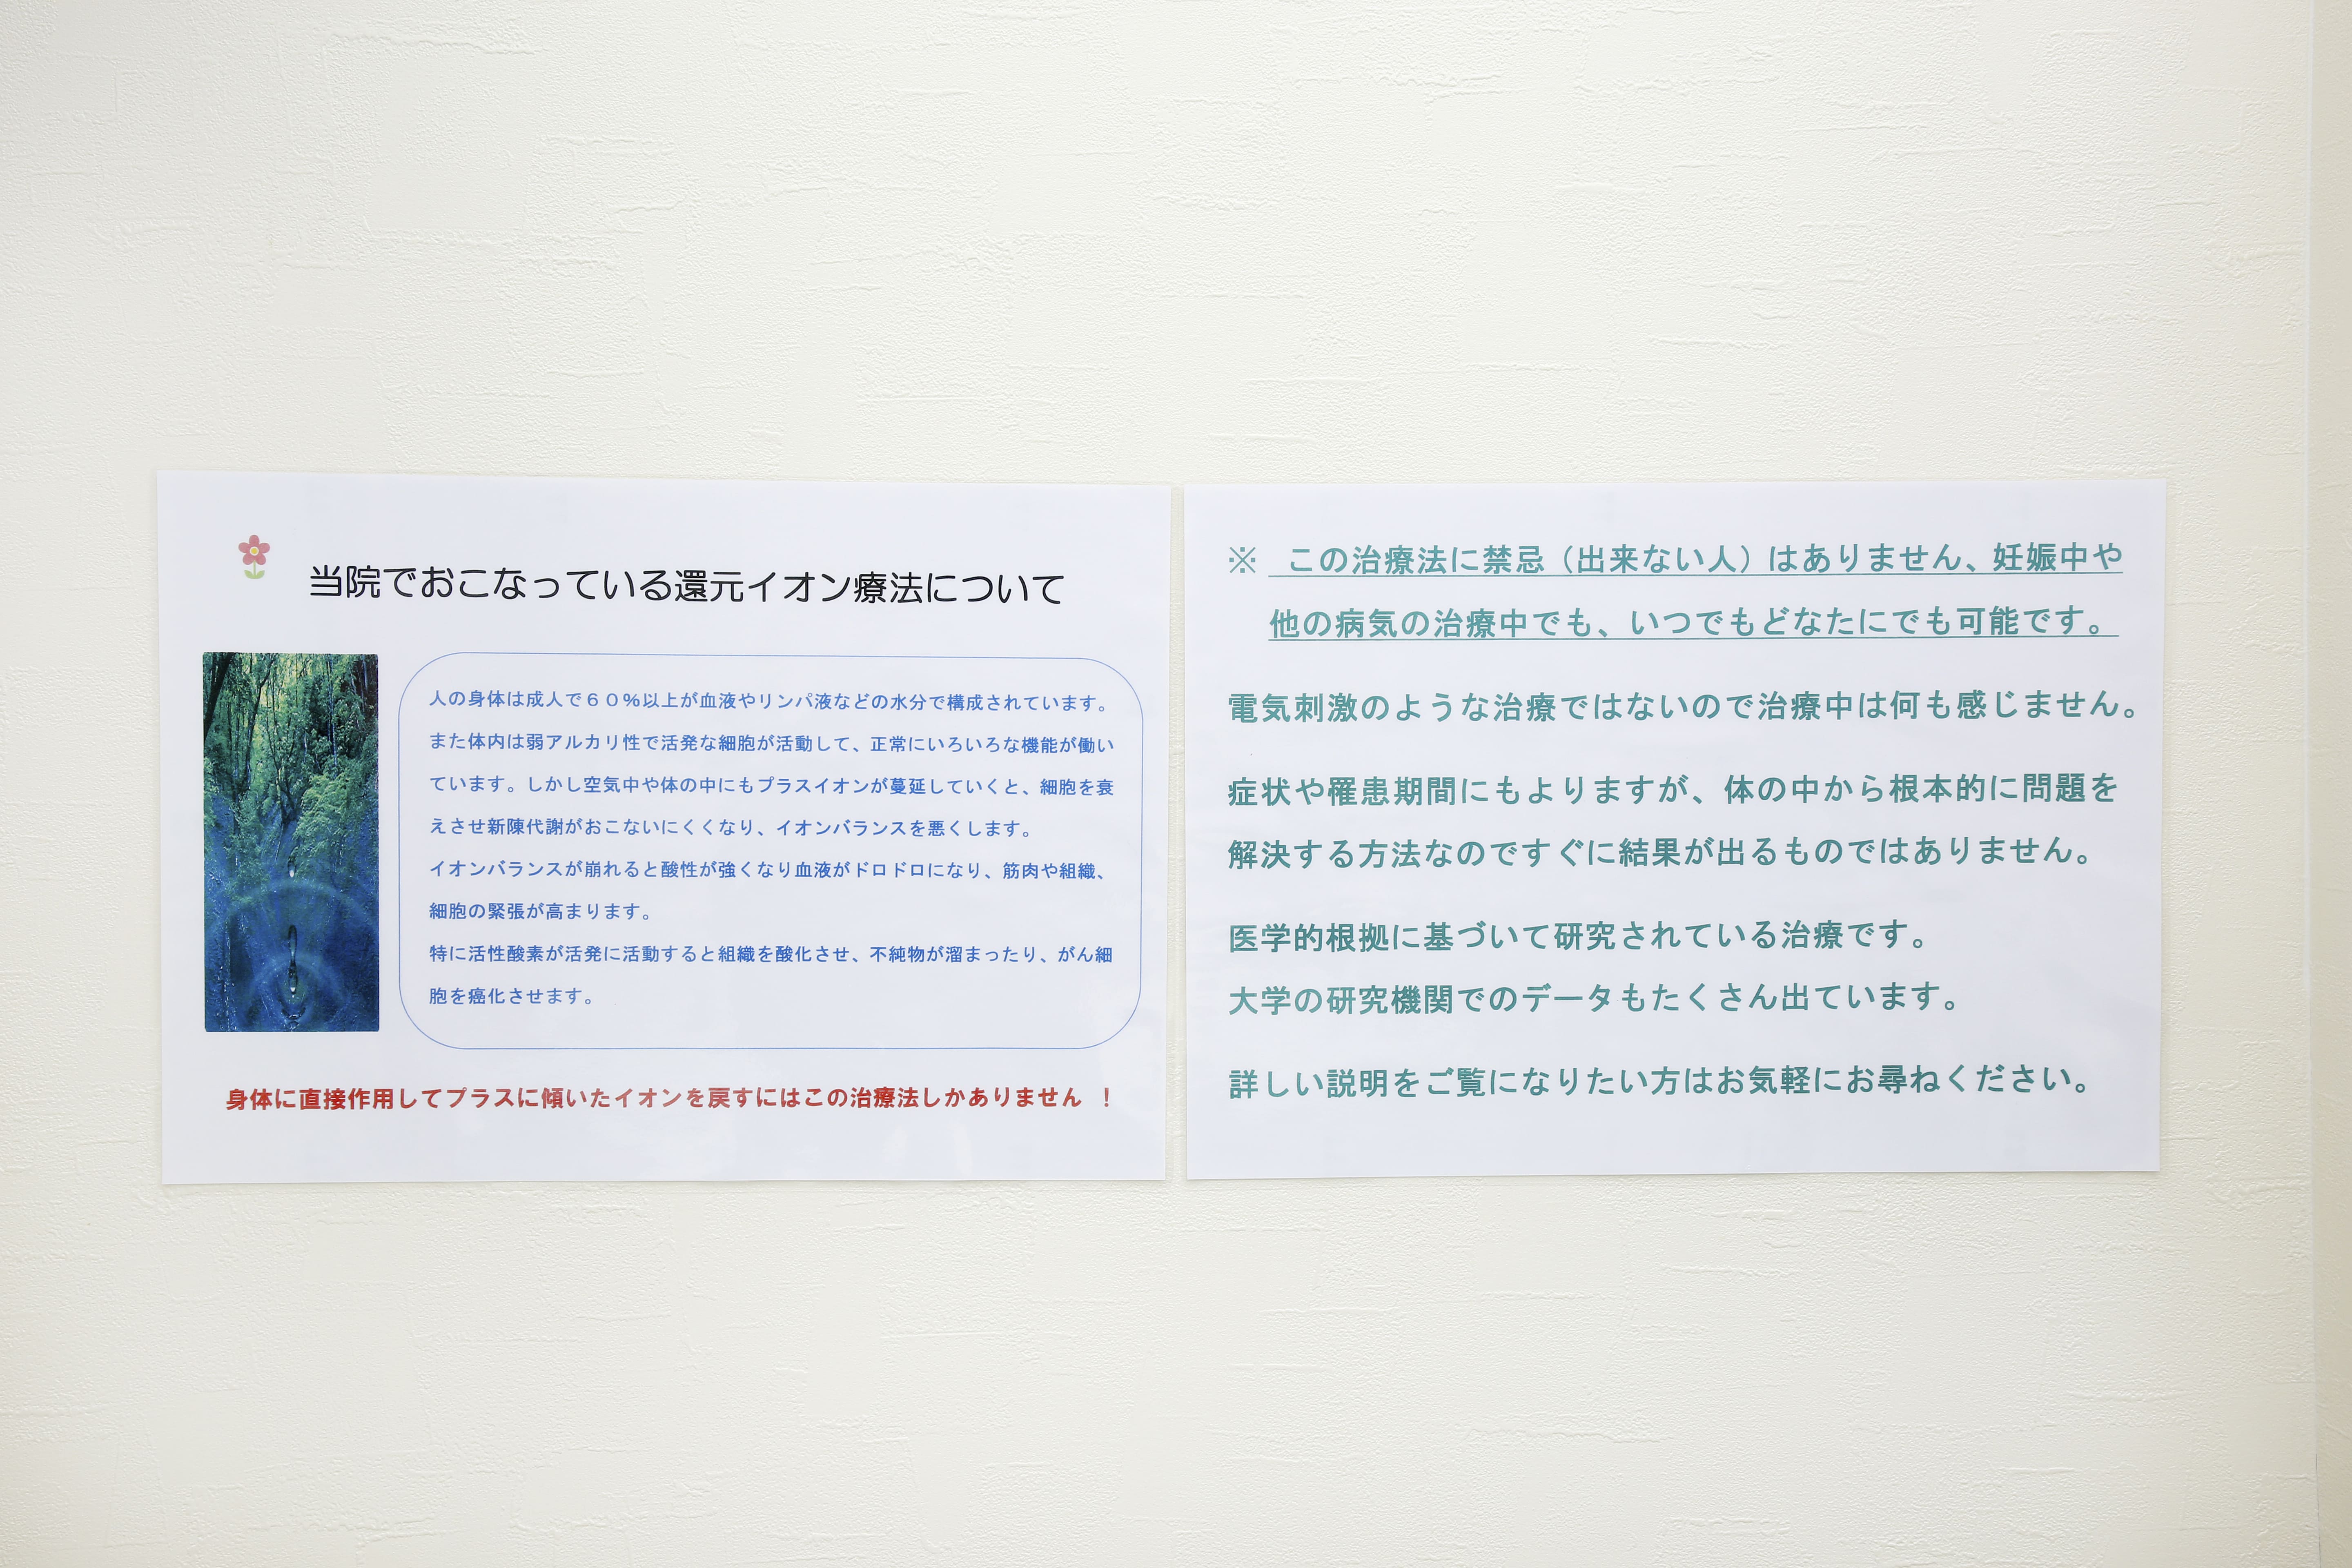 当院でおこなっている還元イオン療法について
人の身体は成人で６０％以上が血液やリンパ液などの水分で構成されています。
また体内は弱アルカリ性で活発な細胞が活動して、正常にいろいろな機能が働い
ています。しかし空気中や体の中にもプラスイオンが蔓延していくと、細胞を衰
えさせ新陳代謝がおこないにくくなり、イオンバランスを悪くします。
イオンバランスが崩れると酸性が強くなり血液がドロドロになり、筋肉や組織、
細胞の緊張が高まります。
特に活性酸素が活発に活動すると組織を酸化させ、不純物が溜まったり、がん細
胞を癌化させます。
身体に直接作用してプラスに傾いたイオンを戻すにはこの治療法しかありません ！
※ この治療法に禁忌（出来ない人）はありません、妊娠中や
他の病気の治療中でも、いつでもどなたにでも可能です。
電気刺激のような治療ではないので治療中は何も感じません。
症状や罹患期間にもよりますが、体の中から根本的に問題を
解決する方法なのですぐに結果が出るものではありません。
医学的根拠に基づいて研究されている治療です。
大学の研究機関でのデータもたくさん出ています。
詳しい説明をご覧になりたい方はお気軽にお尋ねください。